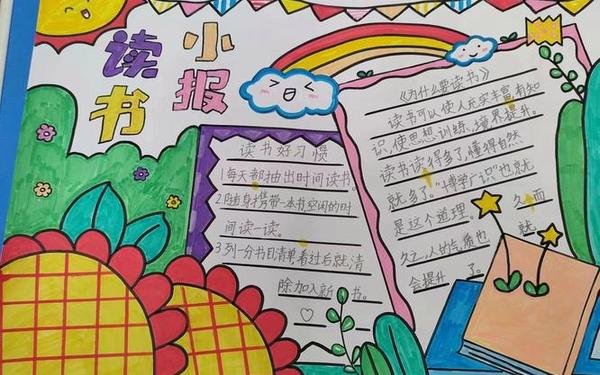 读书
小报
读书好习惯
1每天都抽出时间读书。
2.随身携带一本书空闲的时
间读一读。
3.列一分书目清单,看过后就清
除加入新 书。
《为什么要读书》
读书可以使人充实丰富有知
识,使思想训练,境界提升。
读书读得多了,懂得自然
就多了。“博学广识”也就
是这个道理。 久而
久之,人的气质也 就
会提升 了。